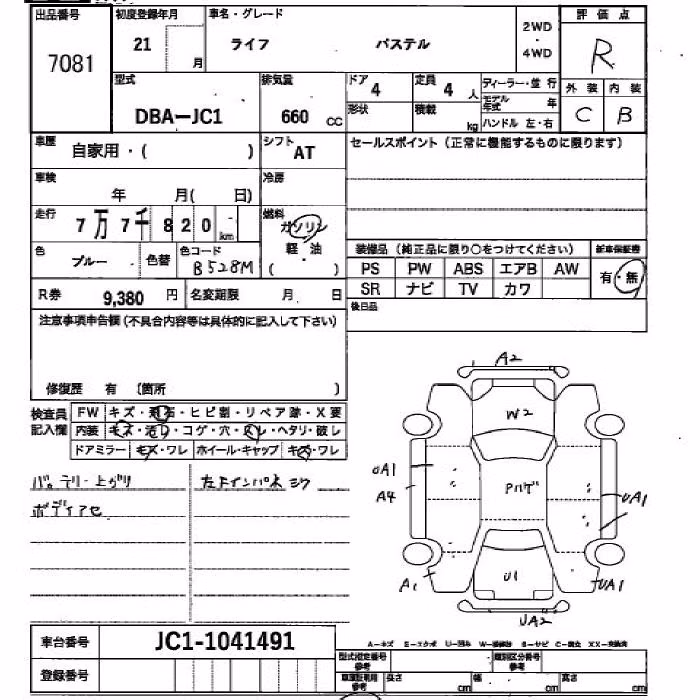 出品番号 初度登録年月 車名・グレード 2WD・4WD 評価点
7081 21 月 ライフ パステル R
型式 排気量 ドア 4 定員 4 人 ディーラー・並行 外装 内装
DBA-JC1 660 cc 形状 積載 kg モデル年式 年 C B
ハンドル 左・右
車歴 自家用・( ) シフト AT セールスポイント(正常に機能するものに限ります)
車検 年 月( 日) 冷房
走行 7万7千820 km 燃料 ガソリン
軽・油
( )
色 ブルー 色替 色コード B528M
装備品(純正品に限り○をつけてください) 新車保証書
PS PW ABS エアB AW 有・無
SR ナビ TV カワ
R券 9,380 円 名変期限 月 日
後日品
注意事項申告欄(不具合内容等は具体的に記入して下さい)
修復歴 有 〔箇所 )
検査員記入欄 FW キズ・飛石・ヒビ割・リペア跡・X要
内装 キズ・汚レ・コゲ・穴・スレ・ヘタリ・破レ
ドアミラー キズ・ワレ ホイール・キャップ キズ・ワレ
バッテリー上ガリ
ボディアセ
A2
W2
UA1
A4
UA1
A1
U1
UA1
UA2
車台番号 JC1-1041491
登録番号
A-キズ E-エクボ U-凹み W-補修跡 S-サビ C-腐食 XX-交換済
型式指定番号 参考 類別区分番号 参考
車庫証明用 参考 長さ cm 幅 cm 高さ cm